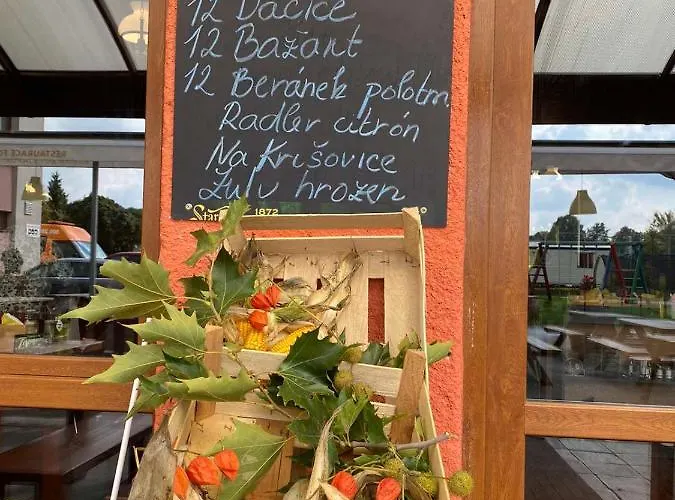 12 Dačice
12 Bažant
12 Beránek polotm.
Radler citrón
Na Krišovice
Žulu hrozen
1872
RESTAURACE